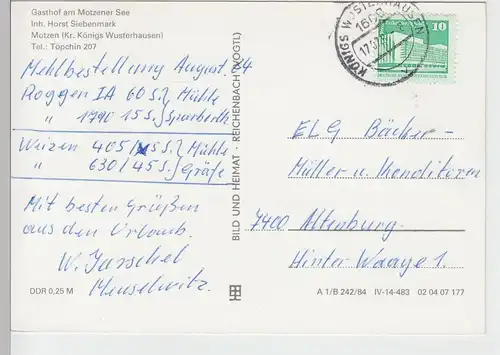 Gasthof am Motzener See
Inh. Horst Siebenmark
Motzen (Kr. Königs Wusterhausen)
Tel.: Töpchin 207
Mehlbestellung August. 84
Roggen IA 60 S. } Mühle
" 1790 15 S. } Sparberth
Weizen 405/ 15 S. } Mühle
" 630/45 S. } Gräfe
Mit besten Grüßen
aus den Urlaub.
W. Jarschel
Meuselwitz.
DDR 0,25 M
BILD UND HEIMAT · REICHENBACH (VOGTL)
KÖNIGS WUSTERHAUSEN
10
ELG Bäcker-
Müller u. Konditoren
7400 Altenburg.
Hinter Waage 1.
A 1/B 242/84 IV-14-483 02 04 07 177